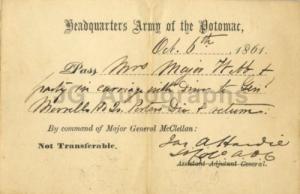 Headquarters Army of the Potomac,
Oct. 6th, 1861.
Pass Mrs Major Webb &
party in carriage with driver to Genl
Morell's Hd Qrs Porters Div & return.
By command of Major General McClellan:
Not Transferable.
Jas A Hardie
Lt Col ADC
Assistant Adjutant General.